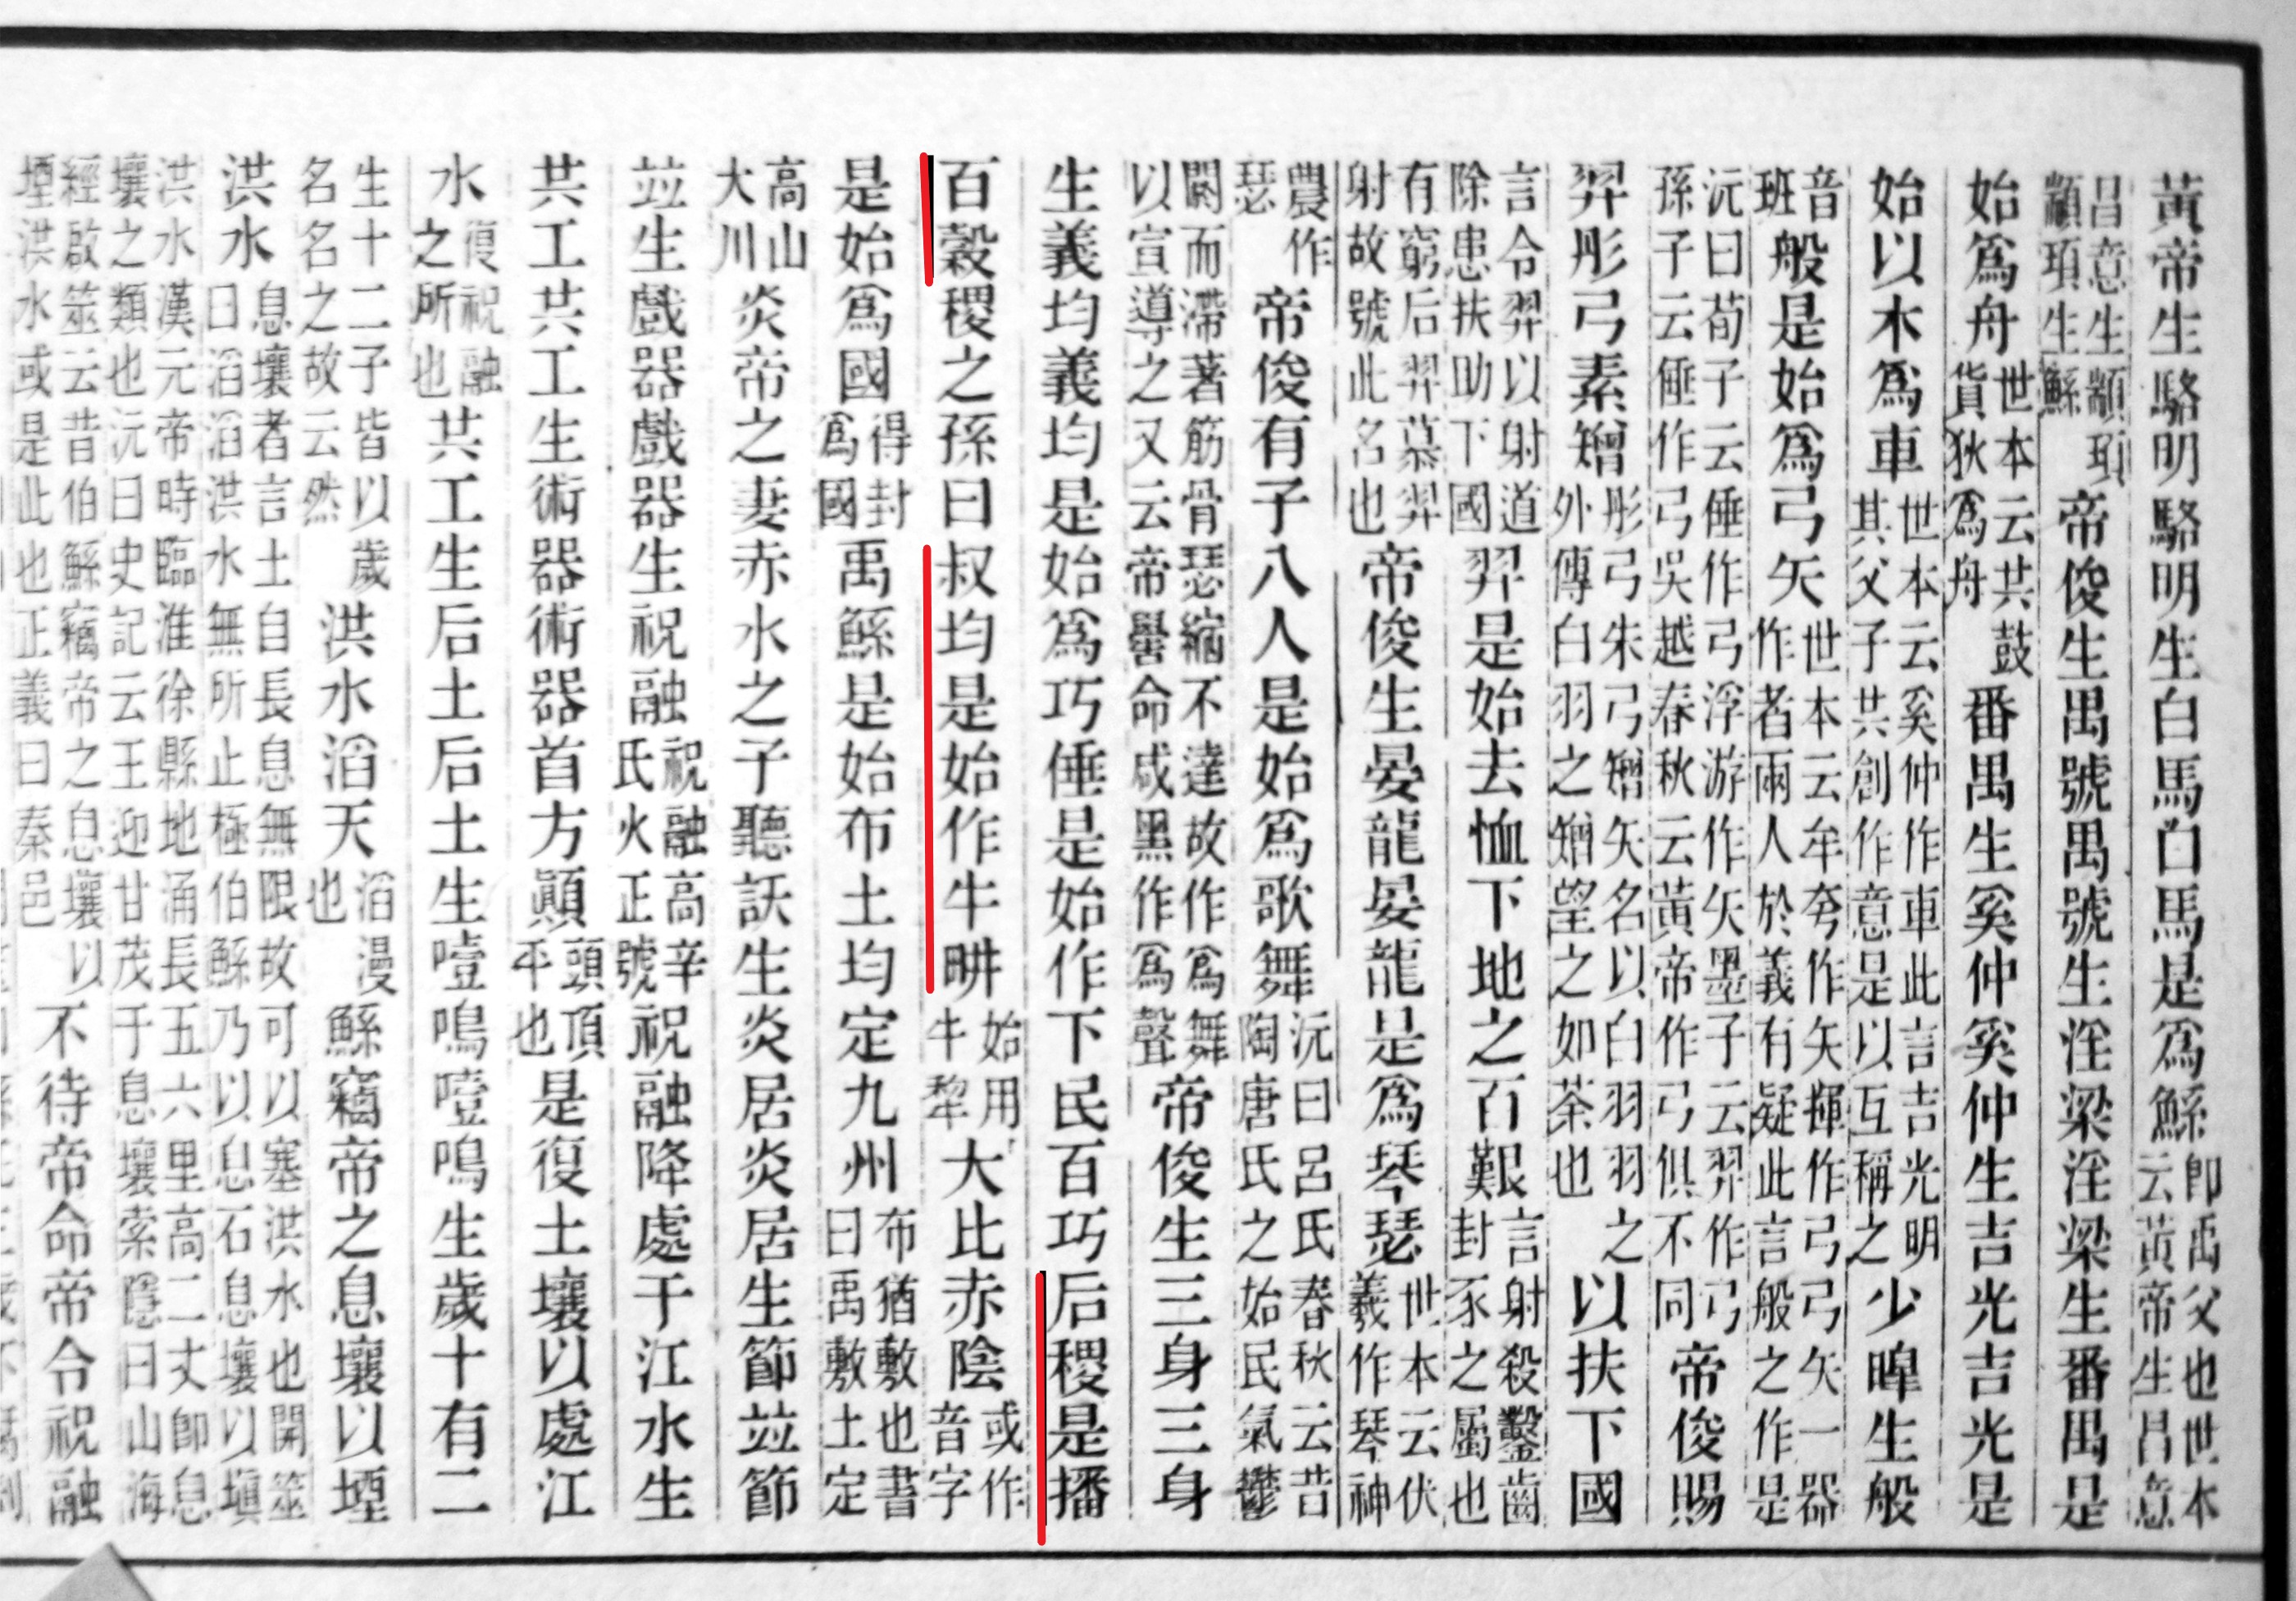 黃帝生駱明駱明生白馬白馬是爲鯀即禹父也世本云黃帝生昌意
昌意生顓頊顓頊生鯀帝俊生禺號禺號生淫梁淫梁生番禺是
始爲舟世本云共鼓貨狄爲舟番禺生奚仲奚仲生吉光吉光是
始以木爲車世本云奚仲作車此言吉光明其父子共創作意是以互稱之少暤生般
音班般是始爲弓矢世本云牟夸作矢揮作弓弓矢一器作者兩人於義有疑此言般之作是
沅曰荀子云倕作弓浮游作矢墨子云羿作弓孫子云倕作弓吳越春秋云黃帝作弓俱不同帝俊賜
羿彤弓素矰彤弓朱弓矰矢名以白羽羽之外傳白羽之矰望之如荼也以扶下國
言令羿以射道除患扶助下國羿是始去恤下地之百艱言射殺鑿齒封豕之屬也
有窮后羿慕羿射故號此名也帝俊生晏龍晏龍是爲琴瑟世本云伏羲作琴神
農作瑟帝俊有子八人是始爲歌舞沅曰呂氏春秋云昔陶唐氏之始民氣鬱
閼而滯著筋骨瑟縮不達故作爲舞以宣導之又云帝嚳命咸黑作爲聲帝俊生三身三身
生義均義均是始爲巧倕是始作下民百巧后稷是播
百穀稷之孫曰叔均是始作牛畊始用牛犂大比赤陰或作音字
是始爲國得封爲國禹鯀是始布土均定九州布猶敷也書曰禹敷土定
高山大川炎帝之妻赤水之子聽訞生炎居炎居生節竝節
竝生戲器戲器生祝融祝融高辛氏火正號祝融降處于江水生
共工共工生術器術器首方顚頭頂平也是復土壤以處江
水復祝融之所也共工生后土后土生噎鳴噎鳴生歲十有二
生十二子皆以歲名名之故云然洪水滔天滔漫也鯀竊帝之息壤以堙
洪水息壤者言土自長息無限故可以塞洪水也開筮曰滔滔洪水無所止極伯鯀乃以息石息壤以塡
洪水漢元帝時臨淮徐縣地涌長五六里高二丈即息壤之類也沅曰史記云王迎甘茂于息壤索隱曰山海
經啟筮云昔伯鯀竊帝之息壤以堙洪水或是此也正義曰秦邑不待帝命帝令祝融